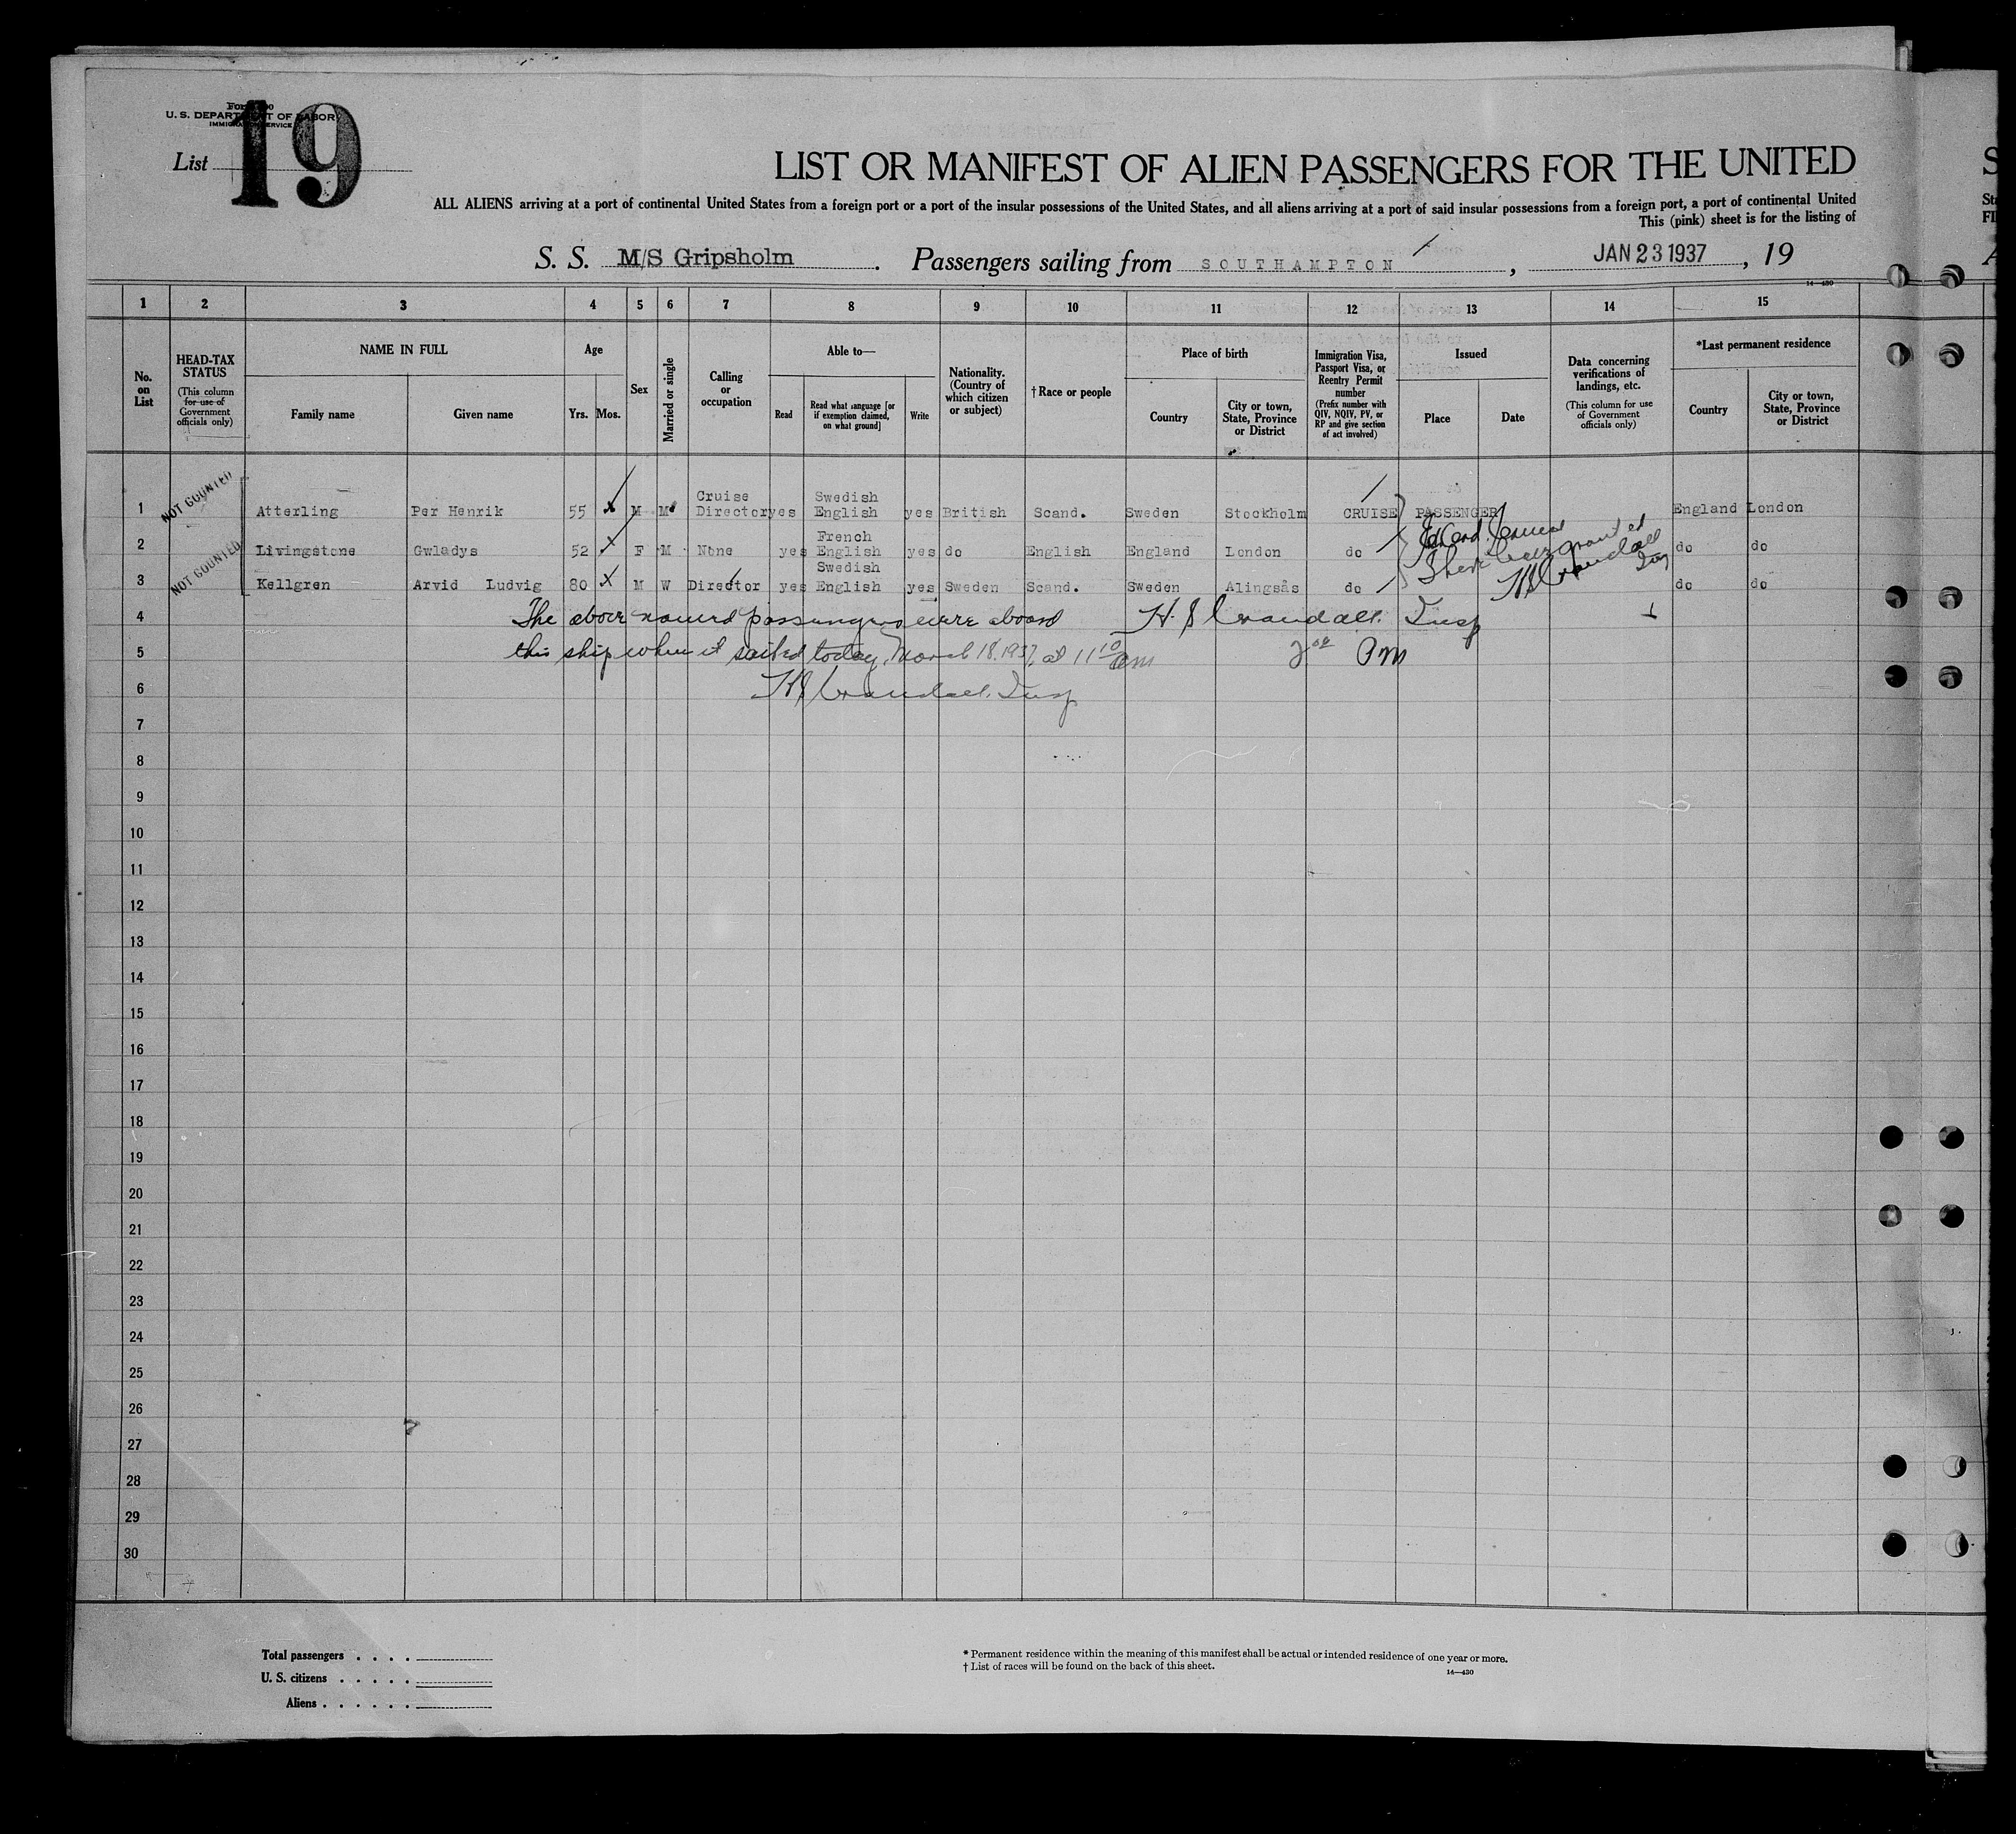 U. S. DEPARTMENT OF LABOR
IMMIGRATION SERVICE
List 19
LIST OR MANIFEST OF ALIEN PASSENGERS FOR THE UNITED
ALL ALIENS arriving at a port of continental United States from a foreign port or a port of the insular possessions of the United States, and all aliens arriving at a port of said insular possessions from a foreign port, a port of continental United
This (pink) sheet is for the listing of
S. S. M/S Gripsholm . Passengers sailing from SOUTHAMPTON , JAN 23 1937 , 19
14—430
1 2 3 4 5 6 7 8 9 10 11 12 13 14 15
No. on List
HEAD-TAX STATUS (This column for use of Government officials only)
NAME IN FULL
Family name Given name
Age
Yrs. Mos.
Sex
Married or single
Calling or occupation
Able to—
Read Read what language [or if exemption claimed, on what ground] Write
Nationality. (Country of which citizen or subject)
†Race or people
Place of birth
Country City or town, State, Province or District
Immigration Visa, Passport Visa, or Reentry Permit number (Prefix number with QIV, NQIV, PV, or RP and give section of act involved)
Issued
Place Date
Data concerning verifications of landings, etc. (This column for use of Government officials only)
*Last permanent residence
Country City or town, State, Province or District
1 NOT COUNTED Atterling Per Henrik 55 M M Cruise Director yes Swedish English yes British Scand. Sweden Stockholm CRUISE PASSENGER England London
2 NOT COUNTED Livingstone Gwladys 52 F M None yes French English yes do English England London do do do
3 Kellgren Arvid Ludvig 80 M W Director yes Swedish English yes Sweden Scand. Sweden Alingsås do do do
Shore leave granted
H S Crandall
Insp
4 The above named passengers were aboard H. S Crandall. Insp
5 this ship when it sailed today, March 18, 1937, at 11 10 am 2 00 Pm
6 H S Crandall. Insp
7
8
9
10
11
12
13
14
15
16
17
18
19
20
21
22
23
24
25
26
27
28
29
30
Total passengers . . . .
U. S. citizens . . . . .
Aliens . . . . . .
* Permanent residence within the meaning of this manifest shall be actual or intended residence of one year or more.
† List of races will be found on the back of this sheet.
14—430